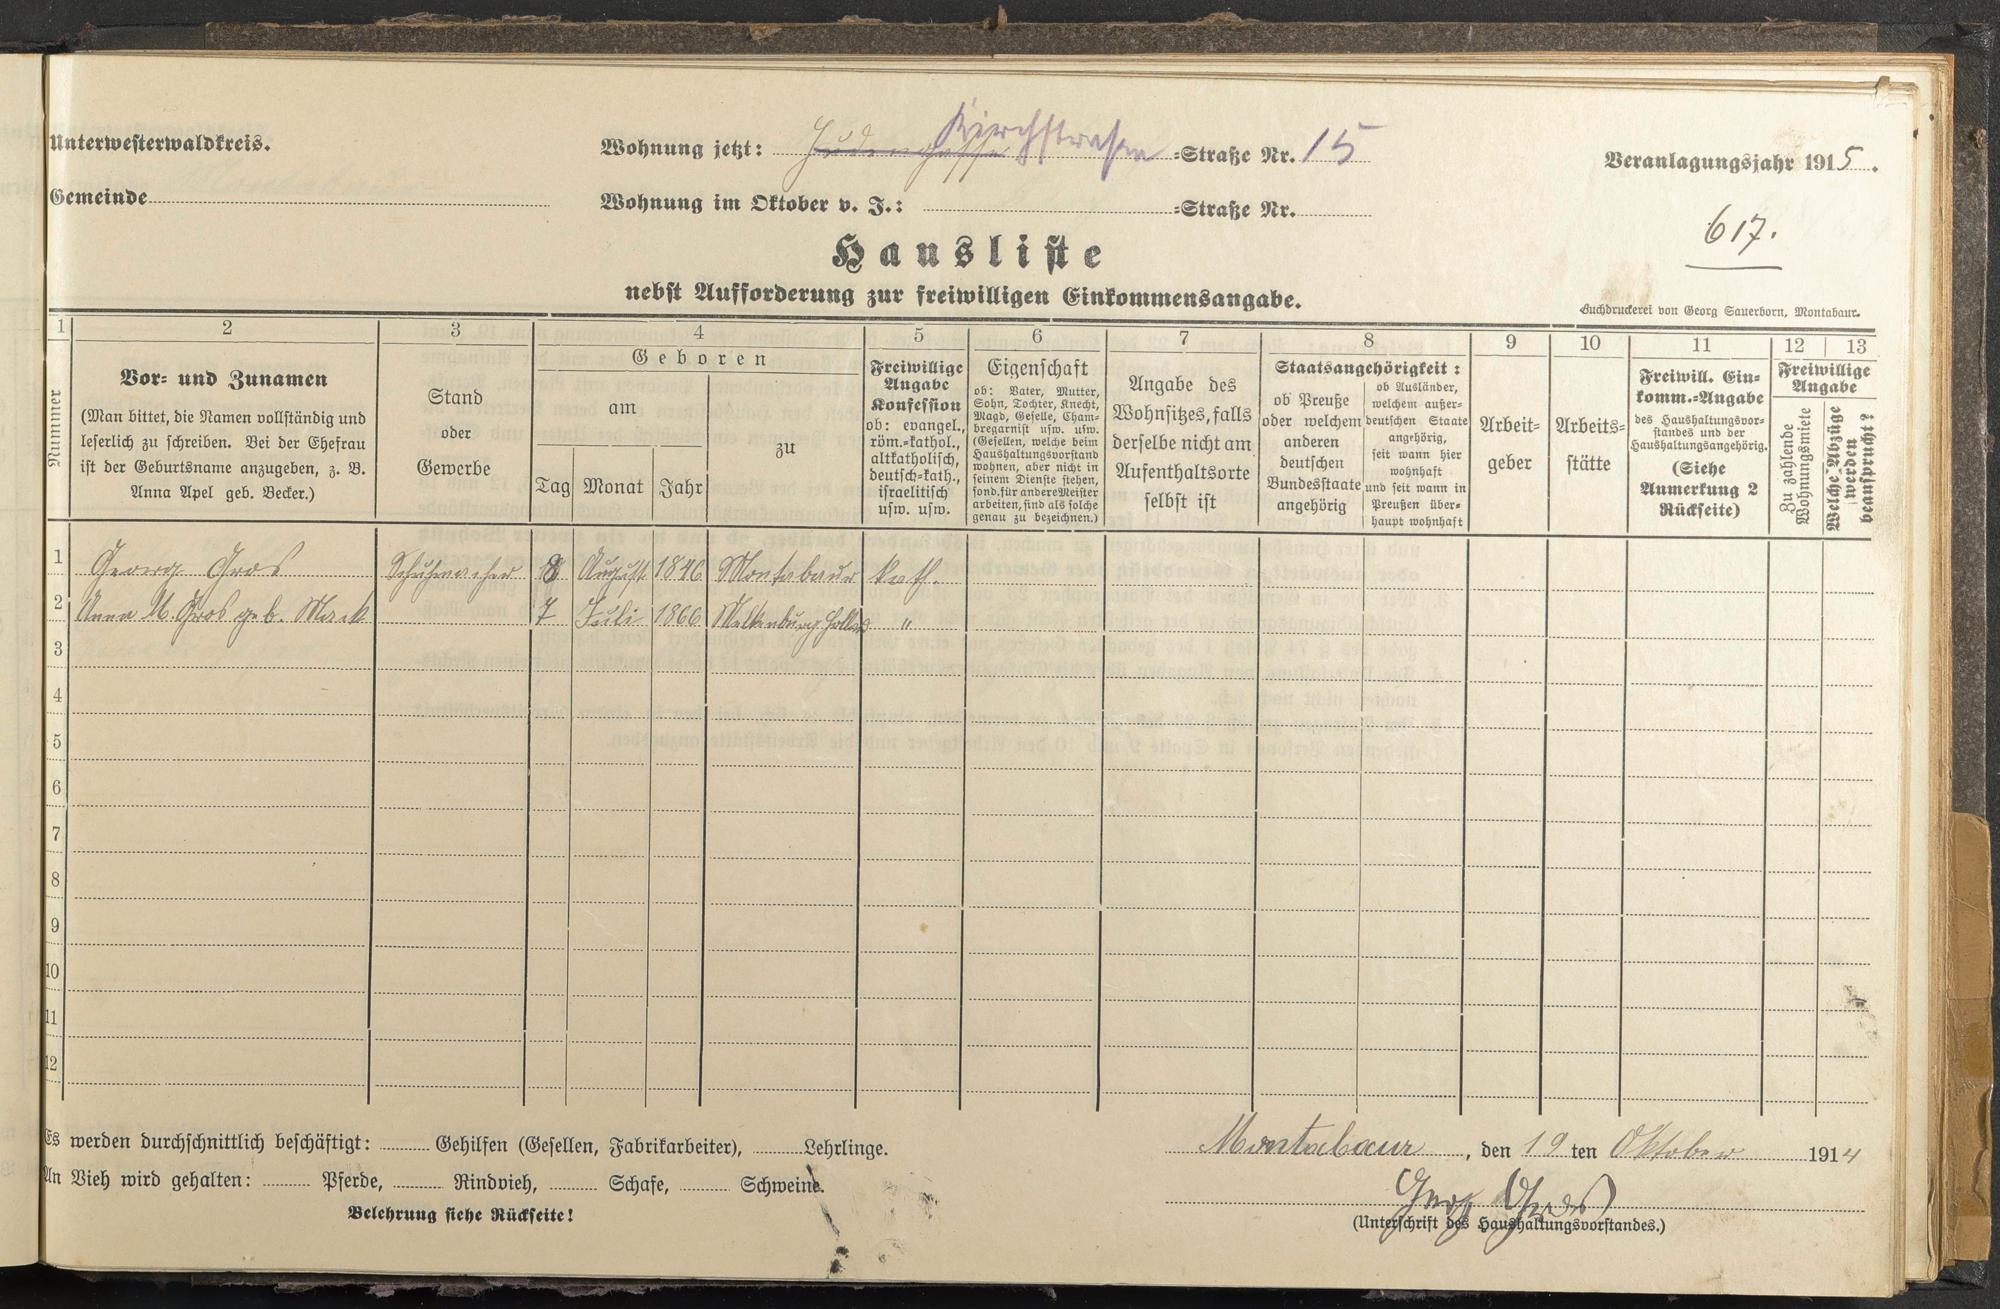 Unterwesterwaldkreis.
Wohnung jetzt: Judengasse Kirchstrasse =Straße Nr. 15
Veranlagungsjahr 1915.
Gemeinde
Wohnung im Oktober v. J.: =Straße Nr.
617.
Hausliste
nebst Aufforderung zur freiwilligen Einkommensangabe.
Buchdruckerei von Georg Sauerborn, Montabaur.
1 2 3 4 5 6 7 8 9 10 11 12 13
Nummer
Vor- und Zunamen
(Man bittet, die Namen vollständig und
leserlich zu schreiben. Bei der Ehefrau
ist der Geburtsname anzugeben, z. B.
Anna Apel geb. Becker.)
Stand
oder
Gewerbe
Geboren
am
Tag Monat Jahr
zu
Freiwillige
Angabe
Konfession
ob: evangel.,
röm.-kathol.,
altkatholisch,
deutsch-kath.,
israelitisch
usw. usw.
Eigenschaft
ob: Vater, Mutter,
Sohn, Tochter, Knecht,
Magd, Geselle, Cham-
bregarnist usw. usw.
(Gesellen, welche beim
Haushaltungsvorstand
wohnen, aber nicht in
seinem Dienste stehen,
sond. für andere Meister
arbeiten, sind als solche
genau zu bezeichnen.)
Angabe des
Wohnsitzes, falls
derselbe nicht am
Aufenthaltsorte
selbst ist
Staatsangehörigkeit:
ob Preuße
oder welchem
anderen
deutschen
Bundesstaate
angehörig
ob Ausländer,
welchem außer-
deutschen Staate
angehörig,
seit wann hier
wohnhaft
und seit wann in
Preußen über-
haupt wohnhaft
Arbeit-
geber
Arbeits-
stätte
Freiwill. Ein-
komm.-Angabe
des Haushaltungsvor-
standes und der
Haushaltungsangehörig.
(Siehe
Anmerkung 2
Rückseite)
Freiwillige
Angabe
Zu zahlende
Wohnungsmiete
Welche Abzüge
werden
beansprucht?
1 Georg Gros Schuhmacher 18 August 1846 Montabaur kath.
2 Anna M. Gros geb. Mack 7 Juli 1866 "
3
4
5
6
7
8
9
10
11
12
Es werden durchschnittlich beschäftigt: Gehilfen (Gesellen, Fabrikarbeiter), Lehrlinge.
Montabaur, den 19 ten Oktober 1914
An Vieh wird gehalten: Pferde, Rindvieh, Schafe, Schweine.
Georg Gros
Belehrung siehe Rückseite!
(Unterschrift des Haushaltungsvorstandes.)